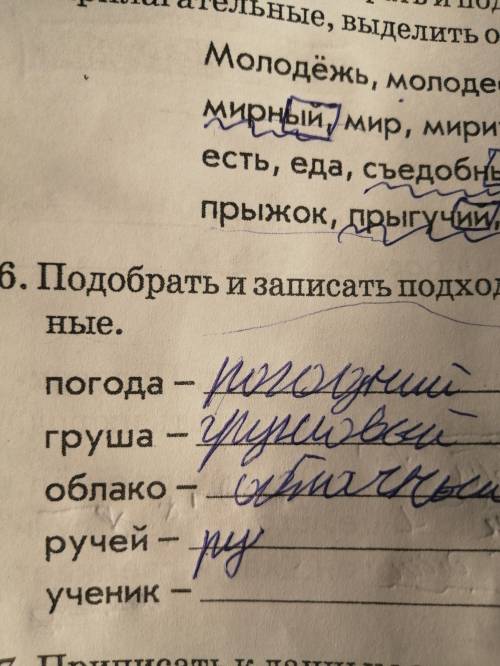 прилагательные, выделить о
Молодёжь, молоде
мирный, мир, мири
есть, еда, съедобн
прыжок, прыгучий,
6. Подобрать и записать подход
ные.
погода – погодний
груша – грушовый
облако – облачный
ручей – ру
ученик –